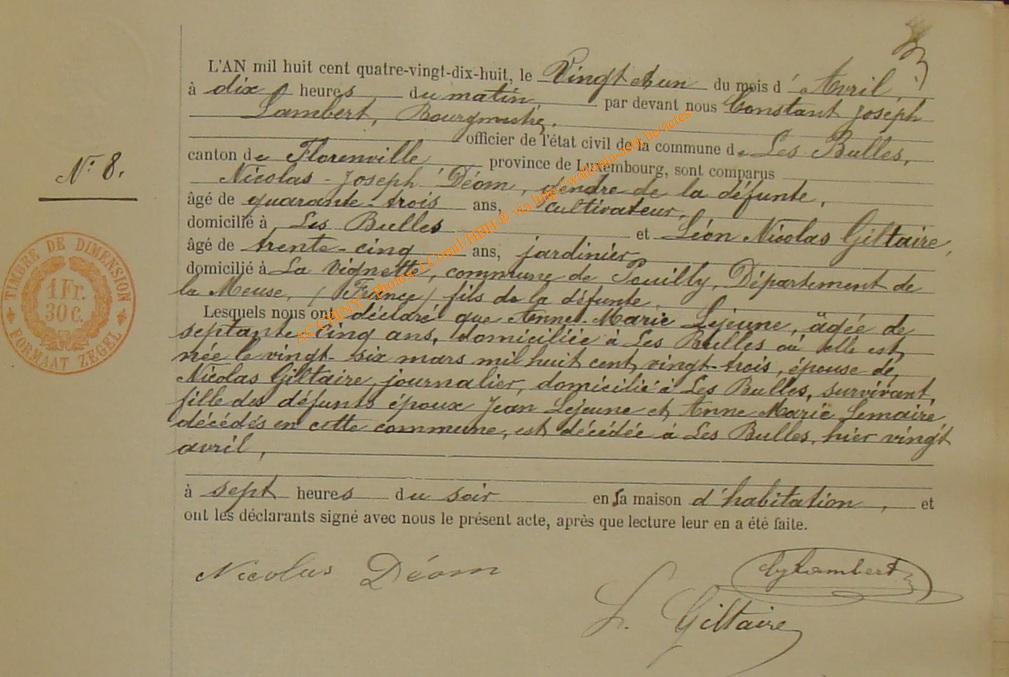 L'AN mil huit cent quatre-vingt-dix-huit, le Vingt et un du mois d'Avril,
à dix heures du matin, par devant nous Constant Joseph
Lambert, Bourgmestre,
officier de l'état civil de la commune de Les Bulles,
canton de Florenville province de Luxembourg, sont comparus
Nicolas-Joseph Déom, gendre de la défunte,
âgé de quarante-trois ans, cultivateur,
domicilié à Les Bulles et Léon Nicolas Giltaire,
âgé de trente-cinq ans, jardinier,
domicilié à La Vignette, commune de Pouilly, Département de
la Meuse, (France) fils de la défunte.
Lesquels nous ont déclaré que Anne Marie Lejeune, âgée de
septante-cinq ans, domiciliée à Les Bulles où elle est
née le vingt-six mars mil huit cent vingt-trois, épouse de
Nicolas Giltaire, journalier, domicilié à Les Bulles, survivant,
fille des défunts époux Jean Lejeune et Anne Marie Lemaire,
décédés en cette commune, est décédée à Les Bulles, hier vingt
avril,
à sept heures du soir en sa maison d'habitation, et
ont les déclarants signé avec nous le présent acte, après que lecture leur en a été faite.
Nº 8.
TIMBRE DE DIMENSION
1 Fr.
30 c.
FORMAAT ZEGEL
Nicolas Déom
Lambert
L. Giltaire